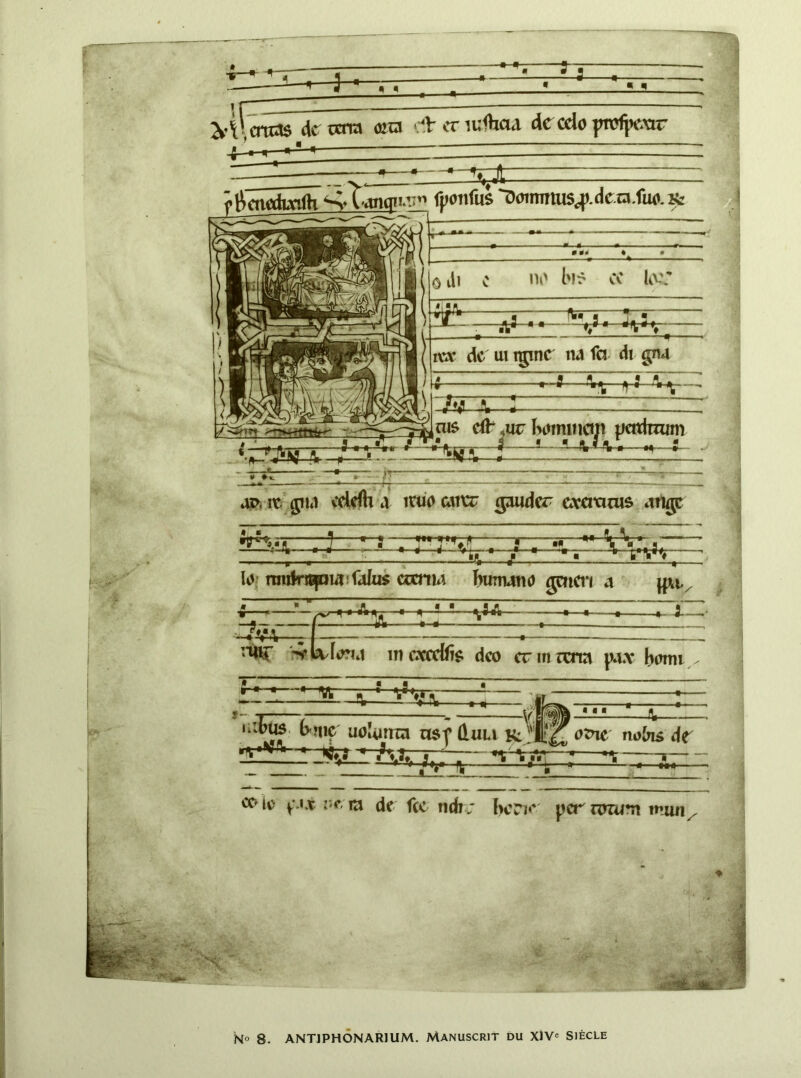 de terra orta est et iusticia de celo prospexit
Benedixisti Tanquam sponsus Dominus p.de.ta.suo. R
odi e no bis ce lor
rex de ui rgine na sci di gna
tus est ut hominem perditum
gna celesti a reuo caret gaudet exercitus ange
lo salus eterna humano generi a ppa
Gloria in excelsis deo et in terra pax homi
nibus bone uolunta tis R odie nobis de
ce lo pax ue ra de sce ndit hodie per totum mun
No 8. ANTIPHONARIUM. MANUSCRIT DU XIVe SIÈCLE